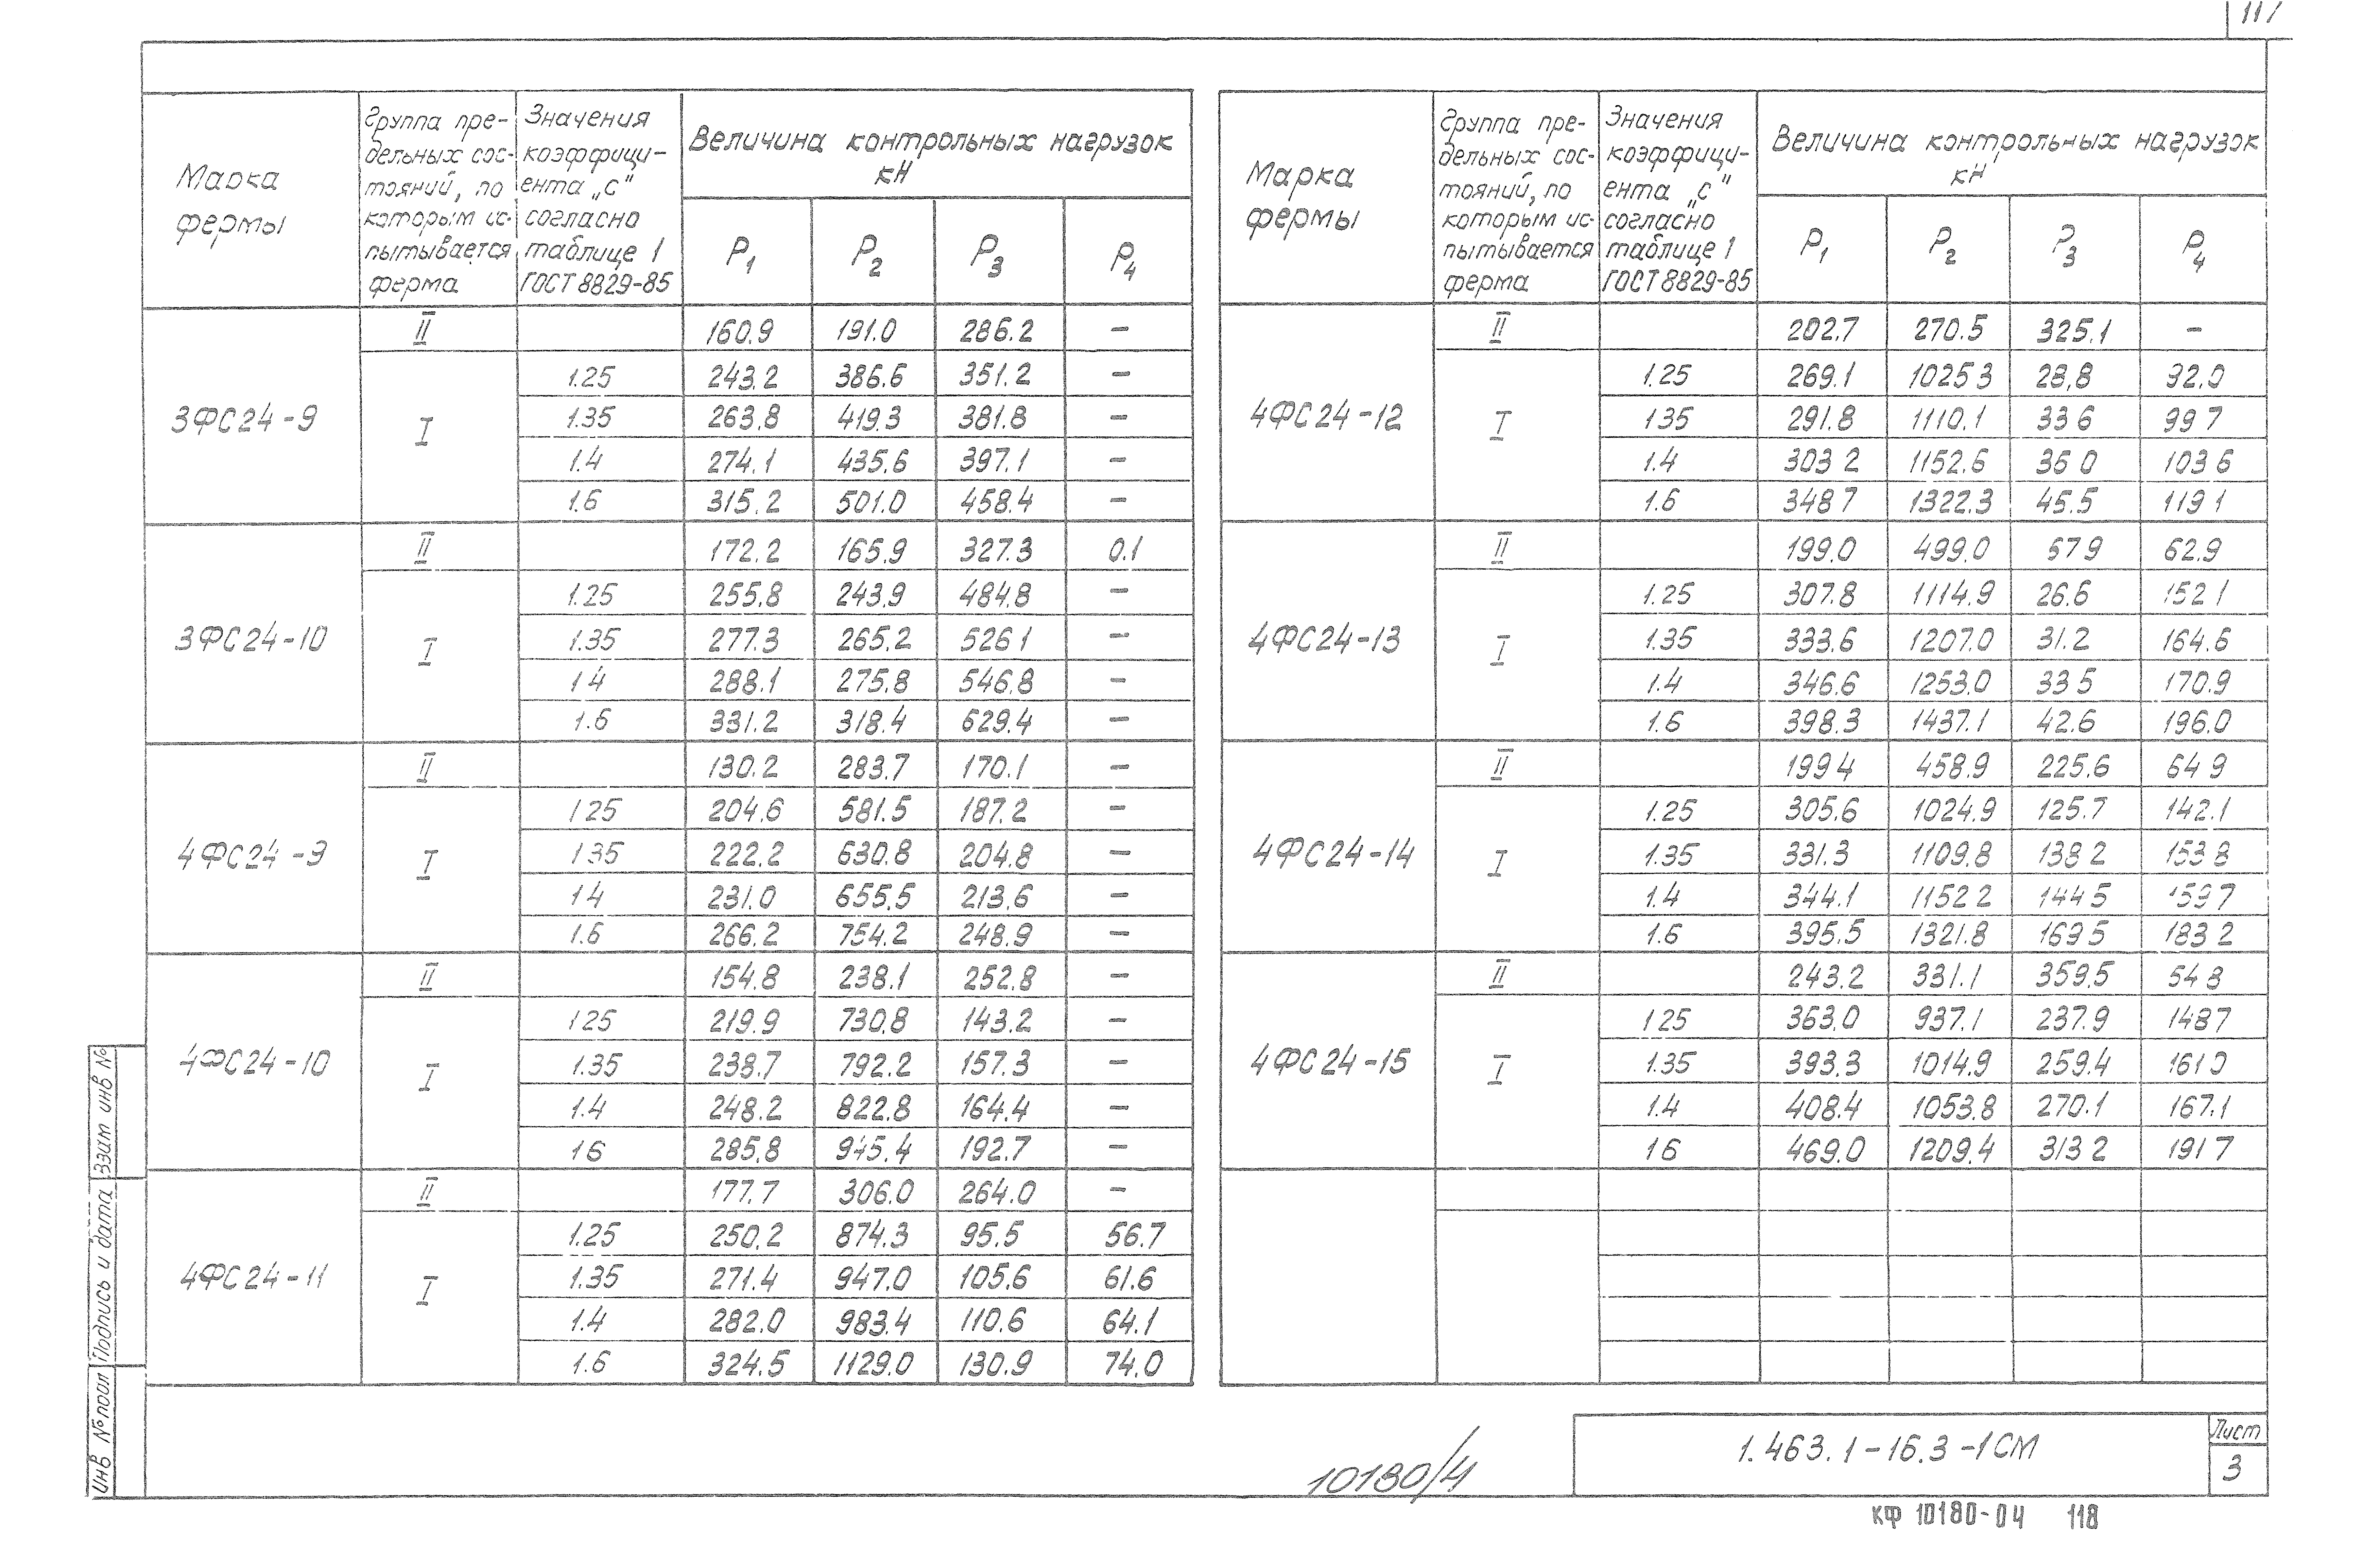 117
Марка фермы | Группа пре- дельных сос- тояний, по которым ис- пытывается ферма | Значения коэффици- ента „С" согласно таблице 1 ГОСТ 8829-85 | Величина контрольных нагрузок кН
P1 | P2 | P3 | P4
3ФС24-9 | II | | 160.9 | 191.0 | 286.2 | –
I | 1.25 | 243.2 | 386.6 | 351.2 | –
1.35 | 263.8 | 419.3 | 381.8 | –
1.4 | 274.1 | 435.6 | 397.1 | –
1.6 | 315.2 | 501.0 | 458.4 | –
3ФС24-10 | II | | 172.2 | 165.9 | 327.3 | 0.1
I | 1.25 | 255.8 | 243.9 | 484.8 | –
1.35 | 277.3 | 265.2 | 526 1 | –
1 4 | 288.1 | 275.8 | 546.8 | –
1.6 | 331.2 | 318.4 | 629.4 | –
4ФС24-9 | II | | 130.2 | 283.7 | 170.1 | –
I | 1 25 | 204.6 | 581.5 | 187.2 | –
1 35 | 222.2 | 630.8 | 204.8 | –
1 4 | 231.0 | 655.5 | 213.6 | –
1.6 | 266.2 | 754.2 | 248.9 | –
4ФС24-10 | II | | 154.8 | 238.1 | 252.8 | –
I | 1 25 | 219.9 | 730.8 | 143.2 | –
1.35 | 238.7 | 792.2 | 157.3 | –
1.4 | 248.2 | 822.8 | 164.4 | –
1 6 | 285.8 | 945.4 | 192.7 | –
4ФС24-11 | II | | 177.7 | 306.0 | 264.0 | –
I | 1.25 | 250.2 | 874.3 | 95.5 | 56.7
1.35 | 271.4 | 947.0 | 105.6 | 61.6
1.4 | 282.0 | 983.4 | 110.6 | 64.1
1.6 | 324.5 | 1129.0 | 130.9 | 74.0
Марка фермы | Группа пре- дельных сос- тояний, по которым ис- пытывается ферма | Значения коэффици- ента „С" согласно таблице 1 ГОСТ 8829-85 | Величина контрольных нагрузок кН
P1 | P2 | P3 | P4
4ФС24-12 | II | | 202.7 | 270.5 | 325.1 | –
I | 1.25 | 269.1 | 1025 3 | 28.8 | 92.0
1 35 | 291.8 | 1110.1 | 33 6 | 99 7
1.4 | 303 2 | 1152.6 | 36 0 | 103 6
1.6 | 348 7 | 1322.3 | 45.5 | 119 1
4ФС24-13 | II | | 199.0 | 499.0 | 67 9 | 62.9
I | 1.25 | 307.8 | 1114.9 | 26.6 | 152 1
1.35 | 333.6 | 1207.0 | 31.2 | 164.6
1.4 | 346.6 | 1253.0 | 33 5 | 170.9
1.6 | 398.3 | 1437.1 | 42.6 | 196.0
4ФС24-14 | II | | 199 4 | 458.9 | 225.6 | 64 9
I | 1.25 | 305.6 | 1024.9 | 125.7 | 142.1
1.35 | 331.3 | 1109.8 | 138 2 | 153 8
1.4 | 344.1 | 1152 2 | 144 5 | 159 7
1.6 | 395.5 | 1321.8 | 169 5 | 183 2
4ФС24-15 | II | | 243.2 | 331.1 | 359.5 | 54 8
I | 1 25 | 363.0 | 937.1 | 237.9 | 148 7
1.35 | 393.3 | 1014.9 | 259.4 | 161 0
1.4 | 408.4 | 1053.8 | 270.1 | 167.1
1 6 | 469.0 | 1209.4 | 313 2 | 191 7
Взам инв №
Подпись и дата
Инв № подл
10180/4
1.463.1-16.3-1СМ
Лист
3
КФ 10180-04 118